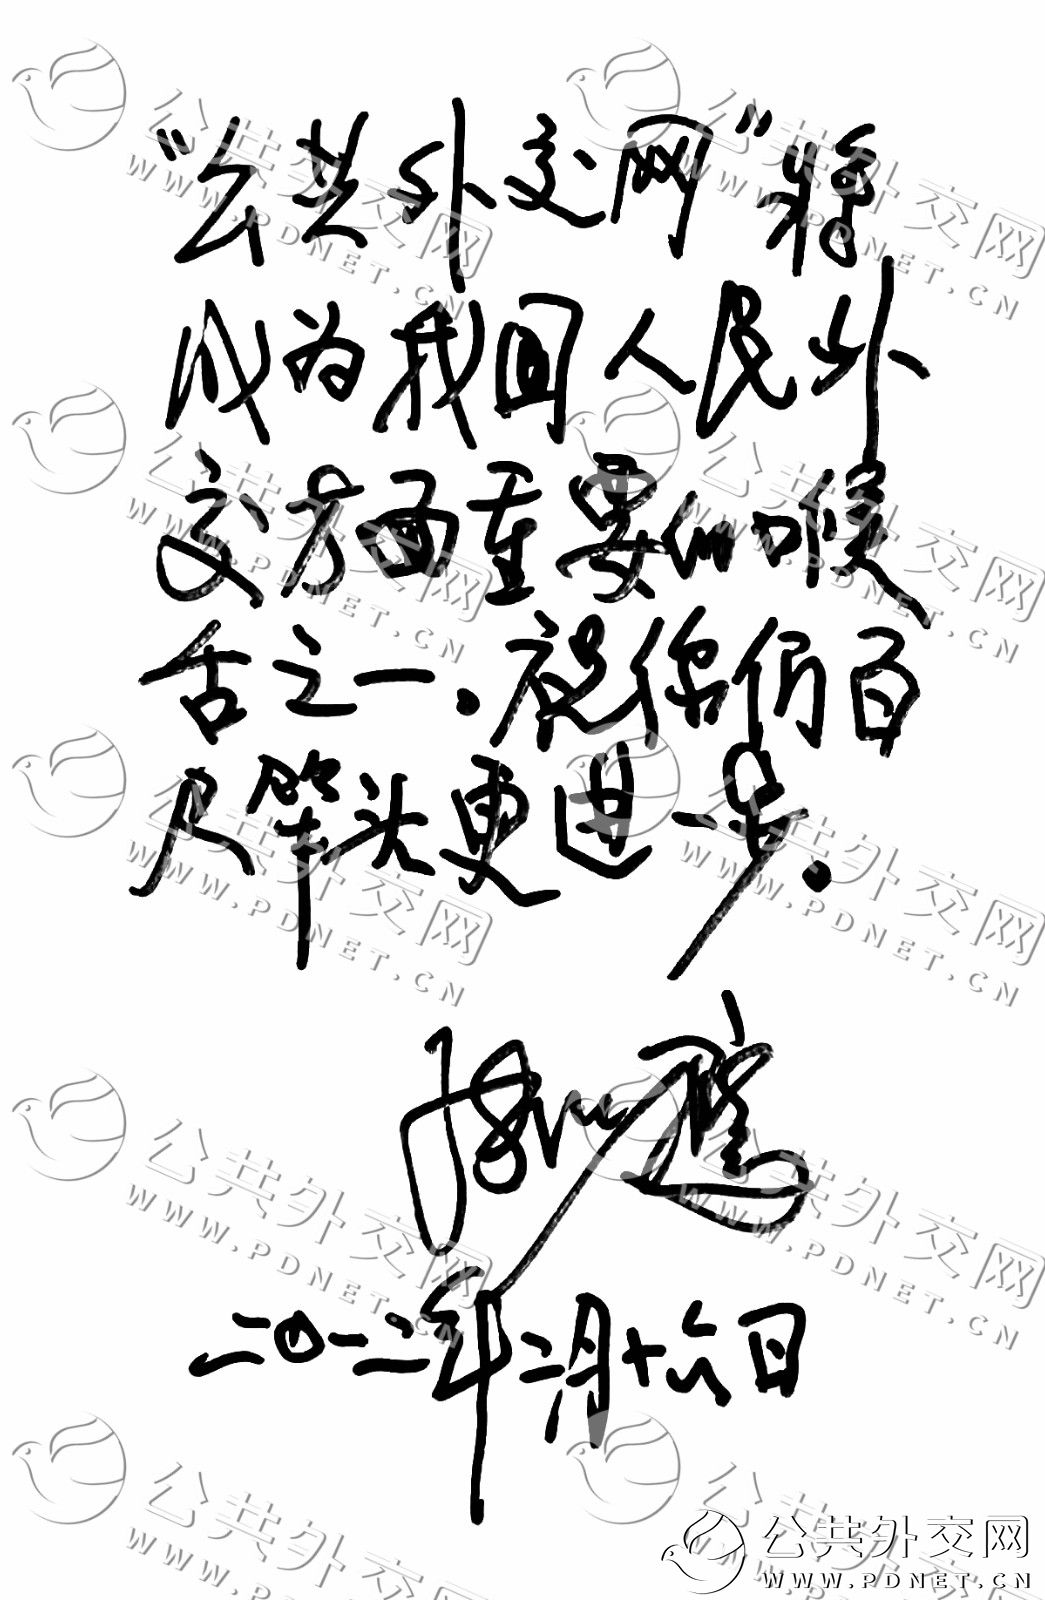 “公共外交网”将
成为我国人民外
交方面重要的喉
舌之一.祝你们百
尺竿头更进一步.
二〇一二年二月十六日
公共外交网
WWW.PDNET.CN